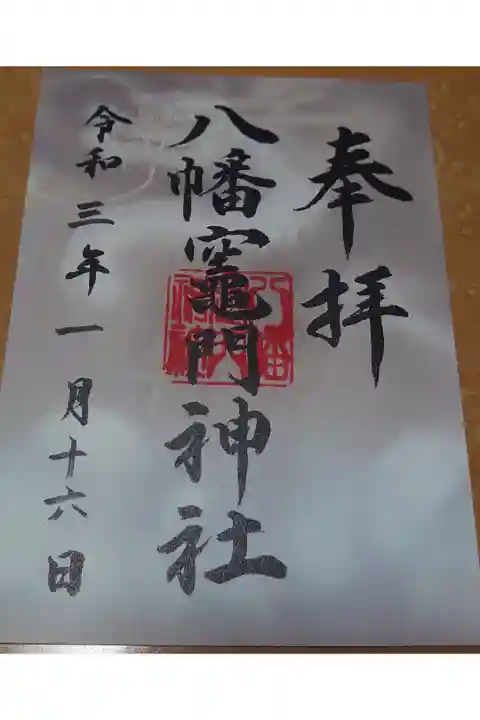 奉拝
八幡竈門神社
令和三年一月十六日